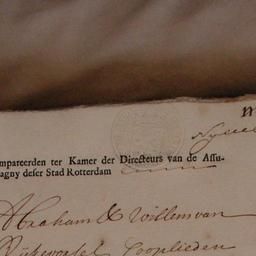 mpareerden ter Kamer der Directeurs van de Assu-
agny deser Stad Rotterdam
Abraham & Willem van
Rijckevorsel Cooplieden